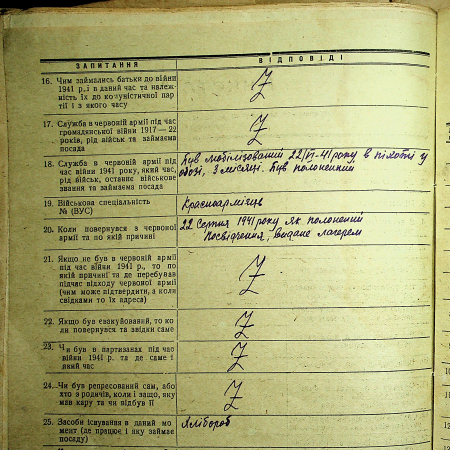 ЗАПИТАННЯ
ВІДПОВІДІ
16. Чим займались батьки до війни
1941 р., і в даний час та належ-
ність їх до комуністичної пар-
тії і з якого часу
Z
17. Служба в червоній армії під час
громадянської війни 1917 — 22
років, рід військ та займаєма
посада
Z
18. Служба в червоній армії під
час війни 1941 року, який час,
рід військ, останнє військове
звання та займаєма посада
Був мобилизований 22/VI-41 року в піхоті у
обозі, 3 місяці. Був полонений
19. Військова спеціяльність
№ (ВУС)
Красноармієць
20. Коли повернувся з червоної
армії та по якій причині
22 Серпня 1941 року як полонений
Посвідчення, видане лагерем
21. Якщо не був в червоній армії
під час війни 1941 р., то по
якій причині та де перебував
підчас відходу червоної армії
(чим може підтвердити, а коли
свідками то їх адреса)
Z
22. Якщо був евакуйований, то ко-
ли повернувся та звідки саме
Z
23. Чи був в партизанах під час
війни 1941 р. та де саме і
який час
Z
24. Чи був репресований сам, або
хто з родичів, коли і защо, яку
мав кару та чи відбув її
Z
25. Засоби існування в даний мо-
мент (де працює і яку займає
посаду)
Хлібороб